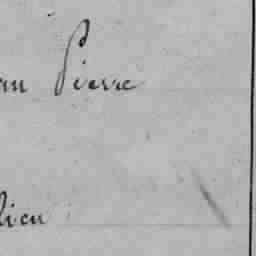 an Pierre
lieu